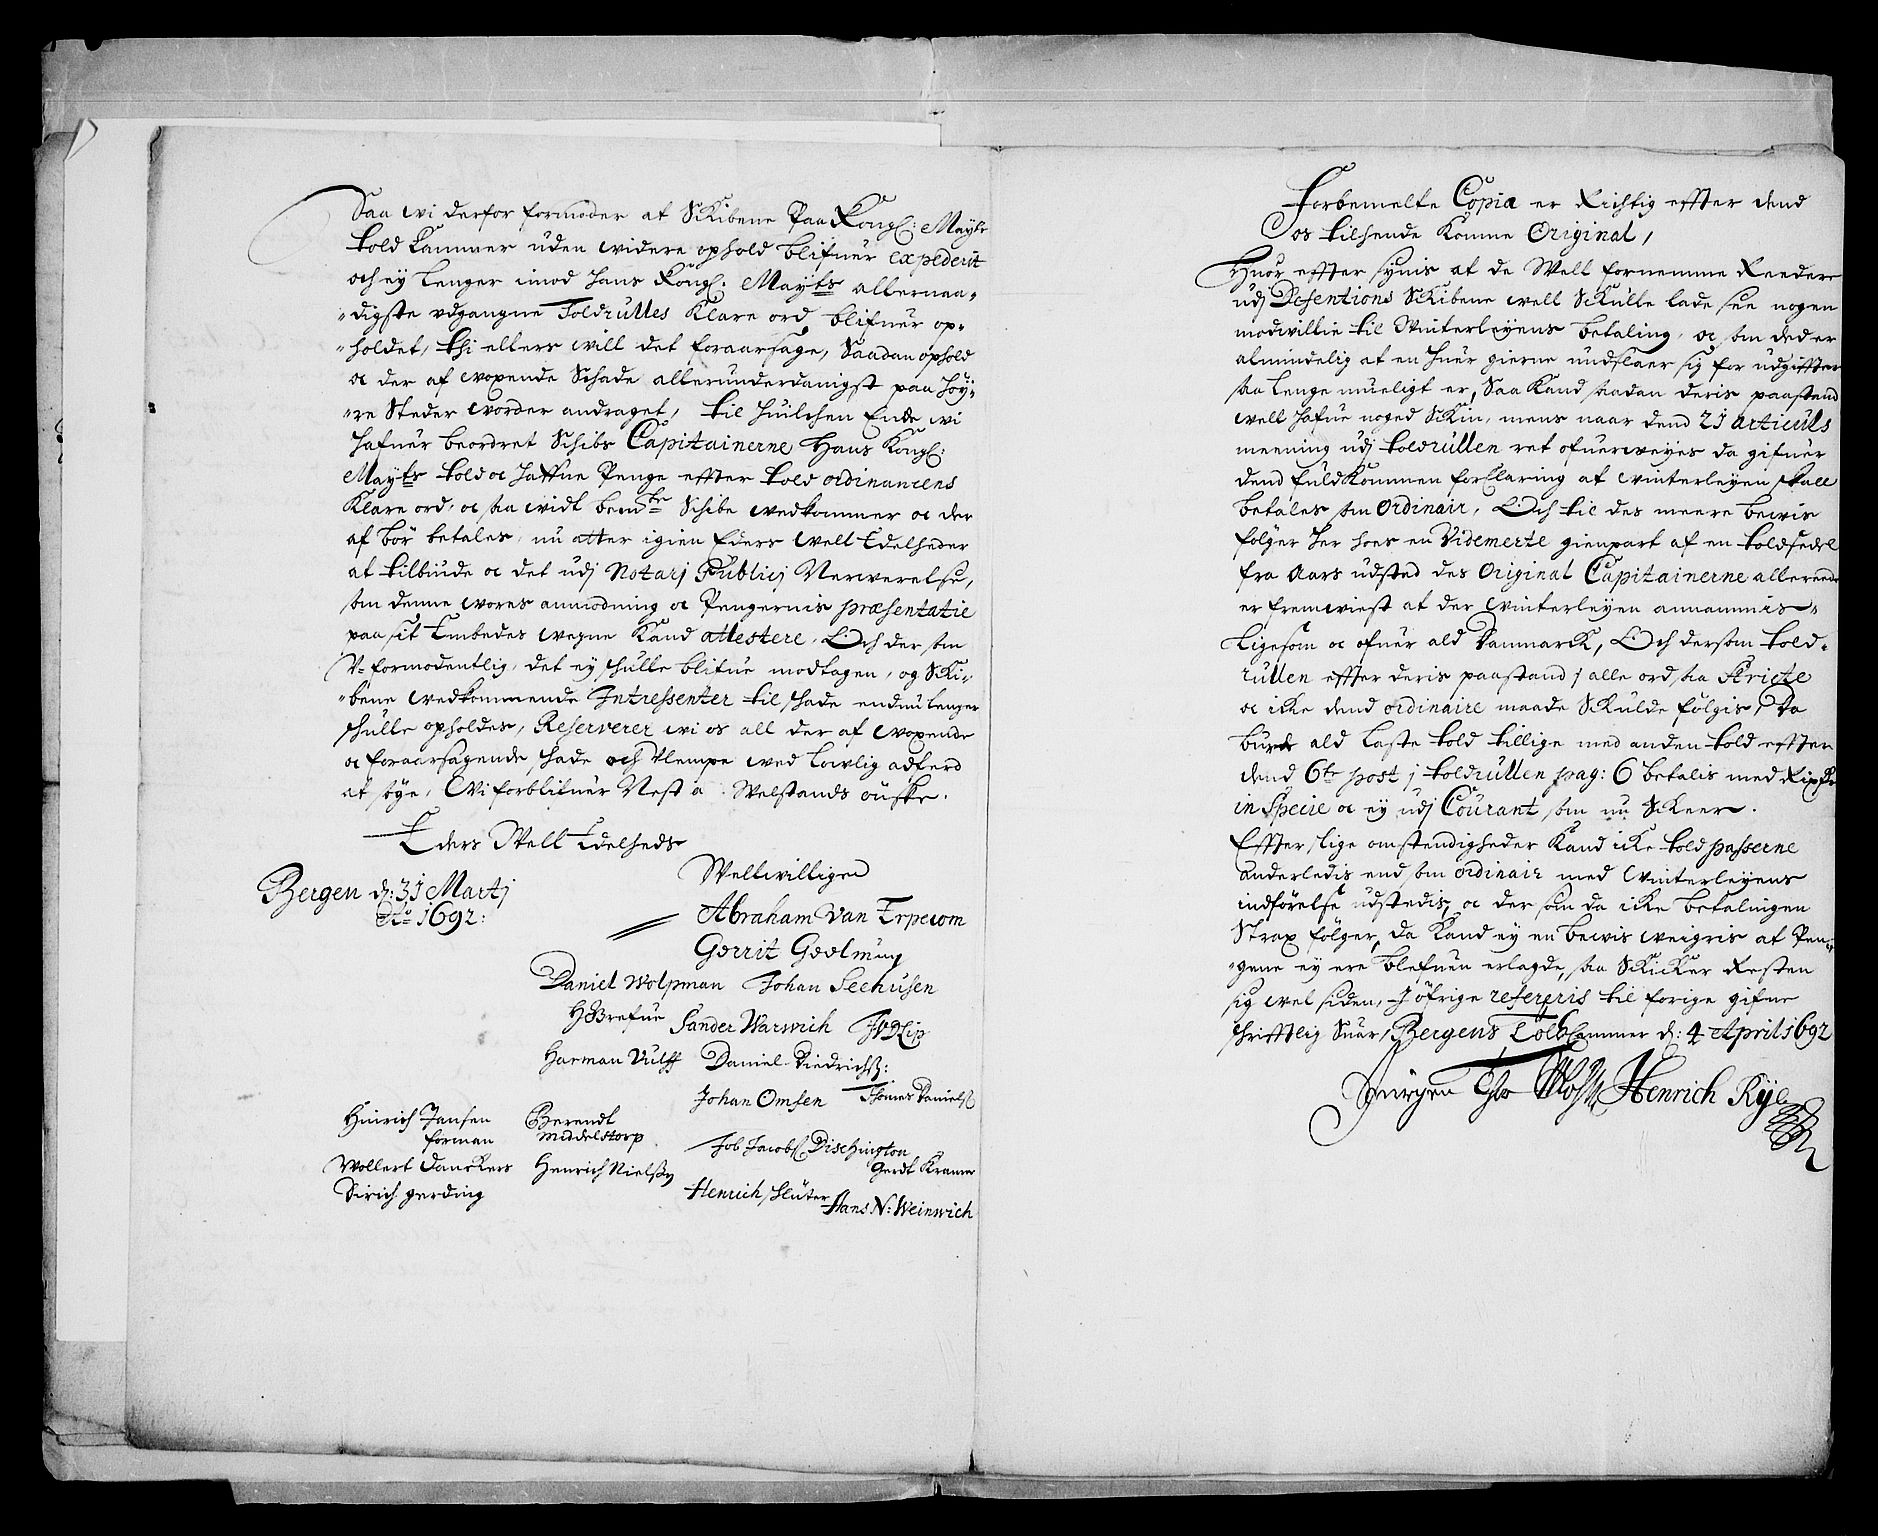 Saa wi derfor formoder at Skibene Paa Kongl: Mayts
told Cammer uden widere ophold blifuer expederit
och ey lenger imod hans Kongl: Mayts allernaa-
digste udgangne Toldrulles klare ord blifuer op-
holdet, thi ellers will det foraarsage, Saadan ophold
oc der af voxende Schade allerunderdanigst paa høy-
re Steder worder andraget, til huilchen Ende wi
hafuer beordret Schibs Capitainerne Hans Kongl:
Mayts told oc haffne Penge effter told ordinancens
klare ord, oc saa widt bemte Schibe wedkommer oc der
af bör betales, nu atter igien Eders Well Edelheder
at tilbiude oc det udj Notarj Publicj Nerwerelse,
som denne wores anmodning oc Pengernis præsentatie
paa sit Embedes wegne kand attestere. Och der som
U-formodentlig, det ey skulle blifue modtagen, og Ski-
bene wedkommende Intressenter til skade endnu lenger
skulle opholdes, Reserverer wi os all der af voxende
oc foraarsagende skade och Ulempe wed lowlig adferd
at søge, Wi forblifuer Nest a Welstands önske.
Eders Well Edelheds
Wellwilligen
Bergen d: 31 Martj
Ao 1692:
Abraham Van Erpecom
Gerrit Geelmuy
Daniel Wolpman Johan Seehusen
Sander Warwich
Harman Vulff Daniel Diedrichß:
Johan Omsen Thomes Daniels
Hinrich Jansen
forman
Berendt
Middelstorp
Job Jacobs Dischington
Gerdt Kramer
Wollert Danckers Henrich Nielßn
Dirich gerding
Henrich Slüter
Hans N: Weinwich
Forbemelte Copia er Richtig effter dend
os tilsende komne Original,
Huor effter synis at de Well fornemme Reedere
udj Defentions Skibene well Skulle lade see nogen
modwillie til Winterleyens betaling, oc som ded er
almindelig at en huer gierne undslaaer sig for udgiffter
saa lenge mueligt er, Saa kand saadan deris paastand
well hafue noged Skin, mens naar dend 21 articuls
meening udj toldrullen ret ofuerweyes da gifuer
dend fuldkommen forklaring at winterleyen skall
betales som Ordinair, Och til des meere bewis
følger her hoes en Videmerte gienpart af en toldsedel
fra Aars udsted des Original Capitainerne allereede
er fremwiest at der winterleyen annammis
ligesom oc ofuer ald Danmarck, Och dersom told-
rullen effter deris paastand j alle ord saa Stricte
oc icke dend ordinaire maade Skulde følgis, Da
burde ald laste told tillige med anden told effter
dend 6te post j toldrullen pag: 6 betalis med Rixdr
in Specie oc ey udj Courant som nu Skeer.
Effter slige omstendigheder kand icke told passerne
anderledis end som ordinair med winterleyens
indförelse udstedis, oc der som da icke betalingen
Strax følger, da kand ey en bewis weigris at Pen-
gene ey ere blefuen erlagde, saa Skicker Resten
sig wel siden, J öfrige refereris til forige gifne
skrifftlig Suar, Bergens Told Cammer d: 4 April 1692
Jürgen Henrich Rye